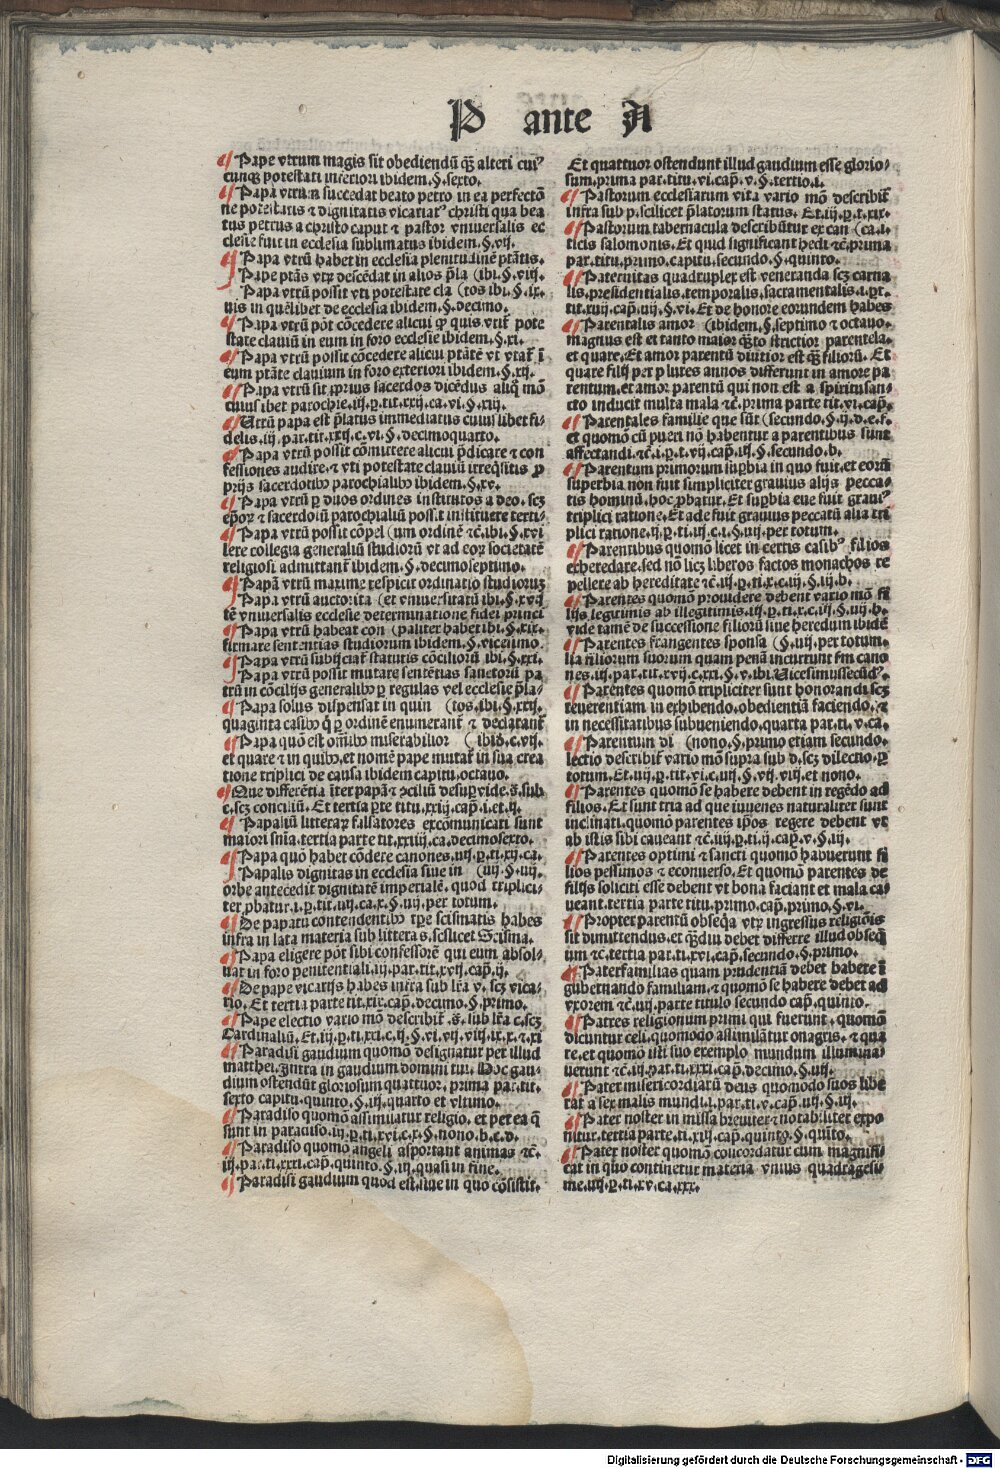 P ante A
Pape vtrum magis sit obediendū qȝ alteri cuiꝰ
cunqȝ potestati inferiori ibidem.§.sexto.
Papa vtrum succedat beato petro in ea perfectō
ne potestatis ⁊ dignitatis vicariatꝰ christi qua bea
tus petrus a christo caput ⁊ pastor vniuersalis ec
clesie fuit in ecclesia sublimatus ibidem.§.vij.
Papa vtrū habet in ecclesia plenitudinē ptātis.
Pape ptās vtrȝ descēdat in alios p̄la (ibi.§.viij.
Papa vtrū possit vti potestate cla (tos ibi.§.ix.
uis in quēlibet de ecclesia ibidem.§.decimo.
Papa vtrū pōt cōcedere alicui ꝙ quis vtit̄ pote
state clauiū in eum in foro ecclesie ibidem.§.xi.
Papa vtrū possit cōcedere alicui ptātē vt vtat̄ ī
eum ptāte clauium in foro exteriori ibidem.§.xij.
Papa vtrū sit ꝓprius sacerdos dicēdus aliq̄ mō
cuiuslibet parochie.iij.p̱.tit.xxij.ca.vi.§.xiij.
Utrū papa est p̄latus immediatus cuiuslibet fi
delis.iij.par.tit.xxij.c.vi.§.decimoquarto.
Papa vtrū possit cōmittere alicui p̄dicare ⁊ con
fessiones audire.⁊ vti potestate clauiū irreq̄sitis ꝓ
prijs sacerdotibꝰ parochialibꝰ ibidem.§.xv.
Papa vtrū p̱ duos ordines institutos a deo.scȝ
ep̄oꝝ ⁊ sacerdotū parochialiū poss.t instituere terti-
Papa vtrū possit cōpel (um ordinē ⁊c̄.ibi.§.xvi
lere collegia generaliū studiorū vt ad eoꝝ societatē
religiosi admittant̄ ibidem.§.decimoseptimo.
Papā vtrū maxime respicit ordinatio studiorum
Papa vtrū auctorita (et vniuersitatū ibi.§.xviij
tē vniuersalis ecclesie determinatione fidei princi
Papa vtrū habeat con (paliter habet ibi.§.xix.
firmare sententias studiorum ibidem.§.vicesimo.
Papa vtrū subijciat̄ statutis cōciliorū ibi.§.xxi.
Papa vtrū possit mutare sentētias sanctorū pa
trū in cōcilijs generalibꝰ p̱ regulas vel ecclesie p̄la-
Papa solus dispensat in quin (tos.ibi.§.xxij.
quaginta casibꝰ q̄ p̱ ordinē enumerant̄ ⁊ declarant̄
Papa quō est oīm̄ibꝰ miserabilior (ibid.c.vij.
et quare ⁊ in quibꝰ.et nomē pape mutat̄ in sua crea
tione triplici de causa ibidem capitu.octauo.
Que differētia īter papā ⁊ ↄciliū desup̱ vide.s̄.sub
c.scȝ concilium.Et tertia p̱te titu.xxiij.cap̄.i.et.ij.
Papaliū litteraꝝ falsatores excōmunicati sunt
maiori snīa.tertia parte tit.xxiiij.ca.decimosexto.
Papa quō habet cōdere canones.iij.p̱.ti.xij.ca.
Papalis dignitas in ecclesia siue in (iij.§.iij.
orbe antecedit dignitatē imperialē.quod triplici-
ter ꝓbatur.i.p̱.tit.iij.ca.x.§.iij.per totum.
De papatu contendentibꝰ tp̱e scismatis habes
infra in lata materia sub littera s.scilicet Scisma.
Papa eligere pōt sibi confessorē qui eum absol-
uat in foro penitentiali.iij.par.tit.xvij.cap̄.ij.
De pape vicarijs habes infra sub lr̄a v.scȝ vica-
rio.Et tertia parte tit.xix.cap̄.decimo.§.primo.
Pape electio vario mō describit̄.s̄.sub lr̄a c.scȝ
Cardinaliū.Et.iij.p̱.ti.xxi.c.ij.§.vi.vij.viij.ix.x.⁊.xi
Paradisi gaudium quomō designatur per illud
matthei.Intra in gaudium domini tui.Hoc gau-
dium ostendūt gloriosum quattuor.prima par.tit.
sexto capitu.quinto.§.iij.quarto et vltimo.
Paradiso quomō assimulatur religio.et per ea q̄
sunt in paradiso.iij.p̱.ti.xvi.c.x.§.nono.b.c.d.
Paradiso quomō angeli asportant animas ⁊c̄.
iij.par.ti.xxxi.cap̄.quinto.§.iij.quasi in fine.
Paradisi gaudium quod est.siue in quo cōsistit.
Et quattuor ostendunt illud gaudium esse glorio-
sum.prima par.titu.vi.cap̄.v.§.tertio.i.
Pastorum ecclesiarum vita vario mō describit̄
infra sub p.scilicet p̄latorum status.Et.iij.p̱.t.xix.
Pastorum tabernacula describūtur ex can (ca.i.
ticis salomonis.Et quid significant hedi ⁊c̄.prima
par.titu.primo.capitu.secundo.§.quinto.
Paternitas quadruplex est veneranda scȝ carna
lis.presidentialis.temporalis.sacramentalis.i.p̱t.
tit.xiij.cap̄.iij.§.vi.Et de honore eorundem habes
Parentalis amor (ibidem.§.septimo ⁊ octauo.
magnus est et tanto maior q̄ȝto strictior parentela.
et quare.Et amor parentū diutior est qȝ filiorū.Et
quare filij per plures annos differunt in amore pa
rentum.et amor parentū qui non est a spiritusan-
cto inducit multa mala ⁊c̄.prima parte tit.vi.cap̄.
Parentales familie que sūt (secundo.§.ij.d.e.f.
et quomō cū pueri nō habentur a parentibus sunt
affectandi.⁊c̄.i.p̱.t.vij.cap̄.iij.§.secundo.b.
Parentum primorum sup̱bia in quo fuit.et eorū
superbia non fuit simpliciter grauius alijs pecca-
tis hominū.hoc ꝓbatur.Et sup̱bia eue fuit grauiꝰ
triplici ratione.Et ade fuit grauius peccatū alia tri
plici ratione.ij.p̱.ti.iij.c.i.§.iij.per totum.
Parentibus quomō licet in certis casibꝰ filios
exheredare.sed nō licȝ liberos factos monachos re
pellere ab hereditate ⁊c̄.iij.p̱.ti.x.c.iij.§.iij.b.
Parentes quomō prouidere debent vario mō fi
lijs legitimis ab illegitimis.iij.p̱.ti.x.c.iij.§.iij.b.
vide tamē de successione filiorū siue heredum ibidē
Parentes frangentes sponsa (§.iij.per totum.
lia filiorum suorum quam penā incurrunt fm cano
nes.iij.par.tit.xvij.c.xxi.§.v.ibi.Uicesimussecūdꝰ.
Parentes quomō tripliciter sunt honorandi scȝ
reuerentiam in exhibendo.obedientiā faciendo.⁊
in necessitatibus subueniendo.quarta par.ti.v.ca.
Parentum di (nono.§.primo etiam secundo.
lectio describit̄ vario mō supra sub d.scȝ dilectio.p̱
totum.Et.iij.p̱.tit.vi.c.iij.§.vij.viij.et nono.
Parentes quomō se habere debent in regēdo ad
filios.Et sunt tria ad que iuuenes naturaliter sunt
inclinati.quomō parentes ip̄os regere debent vt
ab istis sibi caueant ⁊c̄.iiij.p̱.ti.ij.cap̄.v.§.iij.
Parentes optimi ⁊ sancti quomō habuerunt fi
lios pessimos ⁊ econuerso.Et quomō parentes de
filijs soliciti esse debent vt bona faciant et mala ca-
ueant.tertia parte titu.primo.cap̄.primo.§.vi.
Propter parentū obseq̄a vtrȝ ingressus religiōis
sit dimittendus.et q̄ȝdiu debet differre illud obseq̄
um ⁊c̄.tertia par.ti.xvi.cap̄.secundo.§.primo.
Paterfamilias quam prudentiā debet habere ī
gubernando familiam.⁊ quomō se habere debet ad
vxorem ⁊c̄.iij.parte titulo secundo cap̄.quinto.
Patres religionum primi qui fuerunt.quomō
dicuntur celi.quomodo assimilātur onagris.⁊ qua
re.et quomō isti suo exemplo mundum illumina-
uerunt ⁊c̄.iij.par.ti.xxxi.cap̄.decimo.§.iij.
Pater misericordiarū deus quomodo suos libe
rat a sex malis mundi.i.par.ti.v.cap̄.iij.§.iij.
Pater noster in missa breuiter ⁊ notabiliter expo
nitur.tertia parte.ti.xiij.cap̄.quinto.§.quīto.
Pater noster quomō concordatur cum magnifi-
cat in quo continetur materia vnius quadragesi-
me.iiij.p̱.ti.xv.ca.xxx.
Digitalisierung gefördert durch die Deutsche Forschungsgemeinschaft - DFG